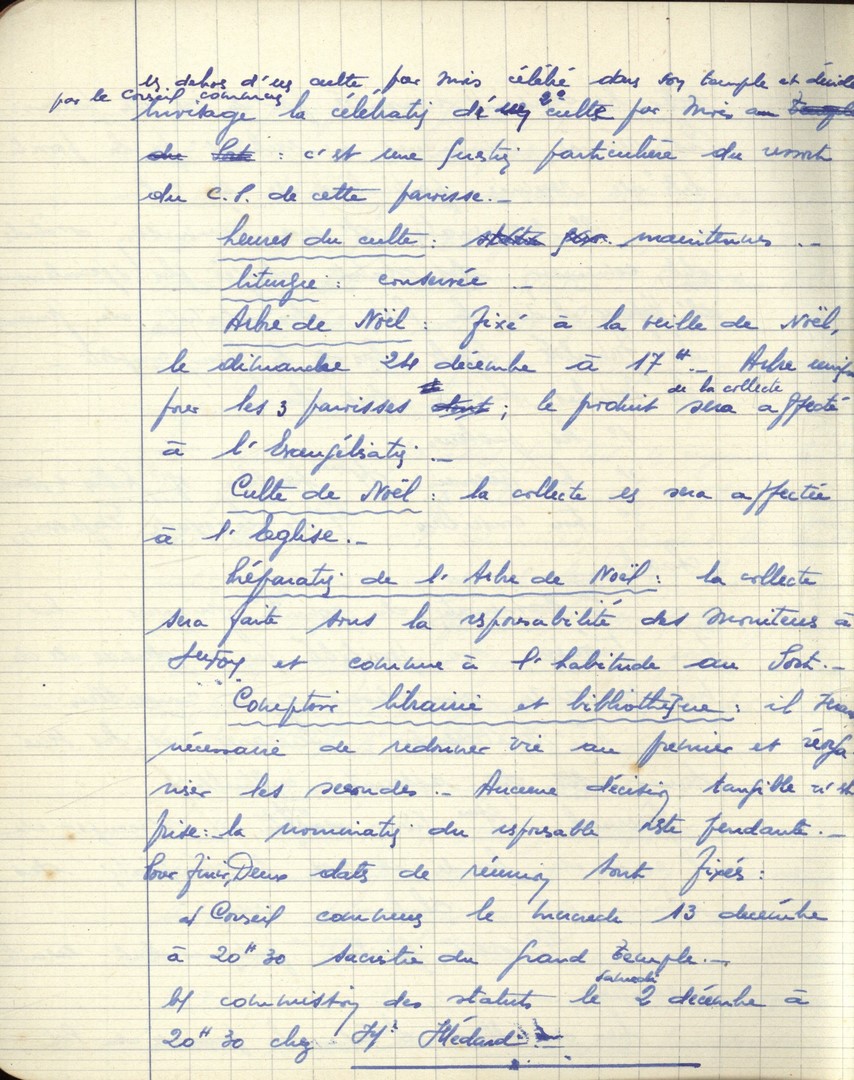 en dehors d'un culte par mois célébré dans son temple et décide
par le Conseil commun
la célébration d'un 2e culte par mois au Temple
du : c'est une question particulière du ressort
du C.P. de cette paroisse.-
heures du culte : maintenues.-
liturgie : conservée.-
Arbre de Noël : fixé à la veille de Noël,
le dimanche 24 décembre à 17H.- Arbre
pour les 3 paroisses dont ; le produit de la collecte sera affecté
à l'Evangélisation.-
Culte de Noël : la collecte en sera affectée
à l'Eglise.-
Préparation de l'Arbre de Noël : la collecte
sera faite sous la responsabilité des moniteurs à
et comme à l'habitude au .-
Comptoir librairie et bibliothèque : il
nécessaire de redonner vie au premier et réorga
niser les secondes.- Aucune décision tangible n'est
prise : la nomination du responsable reste pendante.-
Pour finir, Deux dates de réunion sont fixés :
a/ Conseil commun le mercredi 13 décembre
à 20H30 sacristie du Grand Temple.-
b/ commission des statuts le samedi 2 décembre à
20H30 chez Mr Médard.-